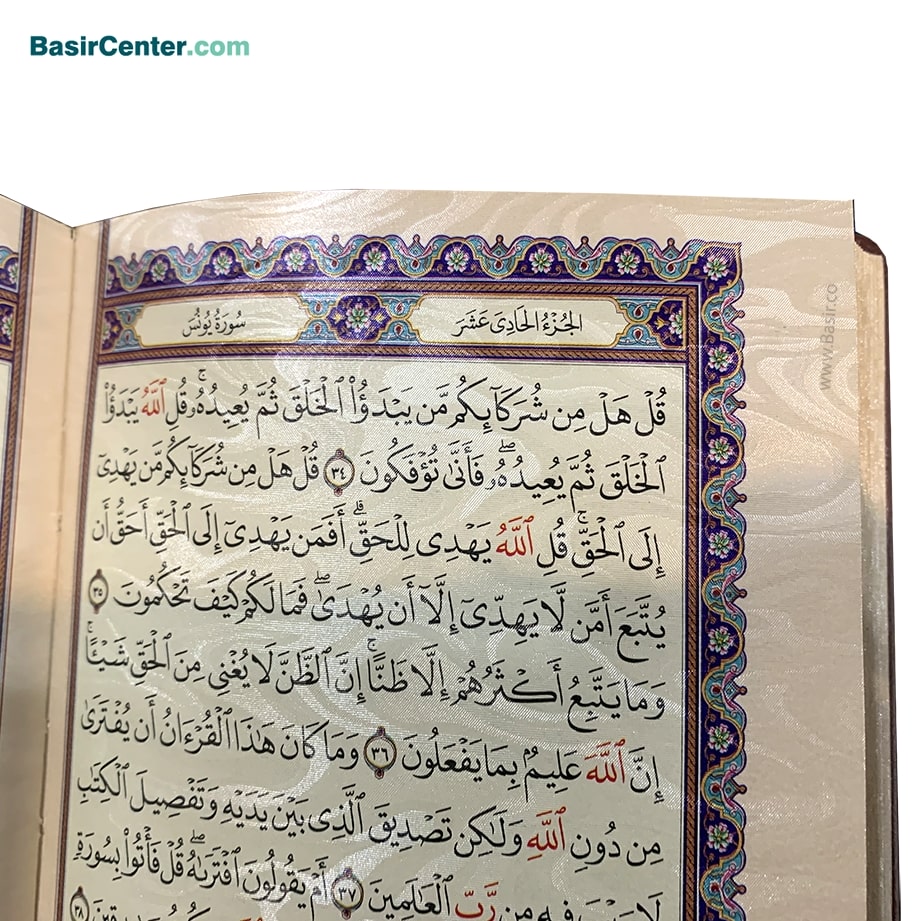 BasirCenter.com
الجُزْءُ الحَادِي عَشَرَ
سُورَةُ يُونُسَ
www.Basir.co
قُلۡ هَلۡ مِن شُرَكَآئِكُم مَّن يَبۡدَؤُاْ ٱلۡخَلۡقَ ثُمَّ يُعِيدُهُۥۚ قُلِ ٱللَّهُ يَبۡدَؤُاْ
ٱلۡخَلۡقَ ثُمَّ يُعِيدُهُۥۖ فَأَنَّىٰ تُؤۡفَكُونَ ٣٤ قُلۡ هَلۡ مِن شُرَكَآئِكُم مَّن يَهۡدِيٓ
إِلَى ٱلۡحَقِّۚ قُلِ ٱللَّهُ يَهۡدِي لِلۡحَقِّۗ أَفَمَن يَهۡدِيٓ إِلَى ٱلۡحَقِّ أَحَقُّ أَن
يُتَّبَعَ أَمَّن لَّا يَهِدِّيٓ إِلَّآ أَن يُهۡدَىٰۖ فَمَا لَكُمۡ كَيۡفَ تَحۡكُمُونَ ٣٥
وَمَا يَتَّبِعُ أَكۡثَرُهُمۡ إِلَّا ظَنًّاۚ إِنَّ ٱلظَّنَّ لَا يُغۡنِي مِنَ ٱلۡحَقِّ شَيۡـًٔاۚ
إِنَّ ٱللَّهَ عَلِيمُۢ بِمَا يَفۡعَلُونَ ٣٦ وَمَا كَانَ هَٰذَا ٱلۡقُرۡءَانُ أَن يُفۡتَرَىٰ
مِن دُونِ ٱللَّهِ وَلَٰكِن تَصۡدِيقَ ٱلَّذِي بَيۡنَ يَدَيۡهِ وَتَفۡصِيلَ ٱلۡكِتَٰبِ
لَا رَيۡبَ فِيهِ مِن رَّبِّ ٱلۡعَٰلَمِينَ ٣٧ أَمۡ يَقُولُونَ ٱفۡتَرَىٰهُۖ قُلۡ فَأۡتُواْ بِسُورَةٖ
٣٨